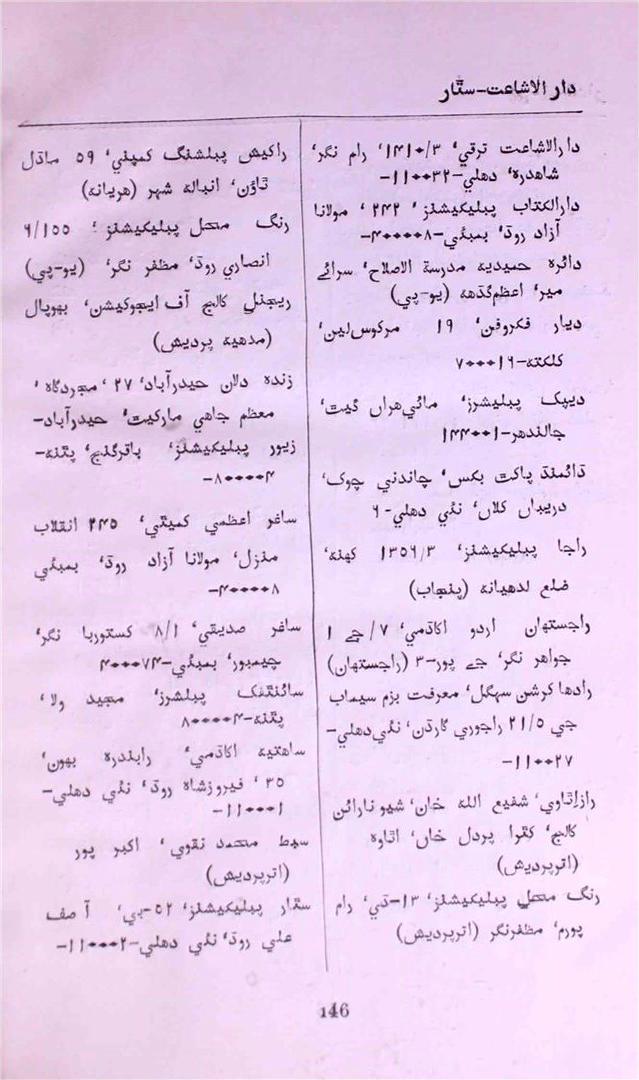 دار الاشاعت-ستّار
دارالاشاعت ترقی، ۱۴۱۰/۳، رام نگر،
شاہدرہ، دھلی-۱۱۰۰۳۲-
دارالکتاب پبلیکیشنز، ۲۴۲، مولانا
آزاد روڈ، بمبئی-۴۰۰۰۰۸-
دائرہ حمیدیہ مدرسۃ الاصلاح، سرائے
میر، اعظم گڈھ (یو-پی)
دیار فکروفن، ۱۹ مرکوس لین،
کلکتہ-۷۰۰۰۱۶
دیپک پبلیشرز، مائی ھراں گیٹ،
جالندھر-۱۴۴۰۰۱
ڈائمنڈ پاکٹ بکس، چاندنی چوک،
دریباں کلاں، نئی دھلی-۶
راجا پبلیکیشنز، ۱۳۵۶/۳ کھنہ،
ضلع لدھیانہ (پنجاب)
راجستھان اردو اکاڈمی، ۷/جے ۱
جواھر نگر، جے پور-۳ (راجستھان)
رادھا کرشن سہگل، معرفت بزم سیماب
جی ۲۱/۵ راجوری گارڈن، نئی دھلی-
۱۱۰۰۲۷-
رازاٹاوی، شفیع اللہ خان، شیو نارائن
کالج، کٹرا پردل خاں، اٹاوہ
(اترپردیش)
رنگ محل پبلیکیشنز، ۱۳-ڈی، رام
پورم، مظفرنگر (اترپردیش)
راکیش پبلشنگ کمپنی، ۵۹ ماڈل
ٹاؤن، انبالہ شہر (ھریانہ)
رنگ محل پبلیکیشنز، ۶/۱۵۵
انصاری روڈ، مظفر نگر، (یو-پی)
ریجنل کالج آف ایجوکیشن، بھوپال
(مدھیہ پردیش)
زندہ دلان حیدرآباد، ۲۷، مجردگاہ،
معظم جاھی مارکیٹ، حیدرآباد-
زیور پبلیکیشنز، باقرگنج، پٹنہ-
۸۰۰۰۰۴-
ساغر اعظمی کمیٹی، ۲۴۵ انقلاب
منزل، مولانا آزاد روڈ، بمبئی
۴۰۰۰۰۸-
ساغر صدیقی، ۸/۱ کستوربا نگر،
چیمبور، بمبئی-۴۰۰۰۷۴
سائنٹفک پبلشرز، مجید ولا،
پٹنہ-۸۰۰۰۰۴
ساھتیہ اکاڈمی، رابندرہ بھون،
۳۵، فیروزشاہ روڈ، نئی دھلی-
۱۱۰۰۰۱-
سبط محمد نقوی، اکبر پور
(اترپردیش)
ستّار پبلیکیشنز، ۵۲-بی، آصف
علی روڈ، نئی دھلی-۱۱۰۰۰۲-
146